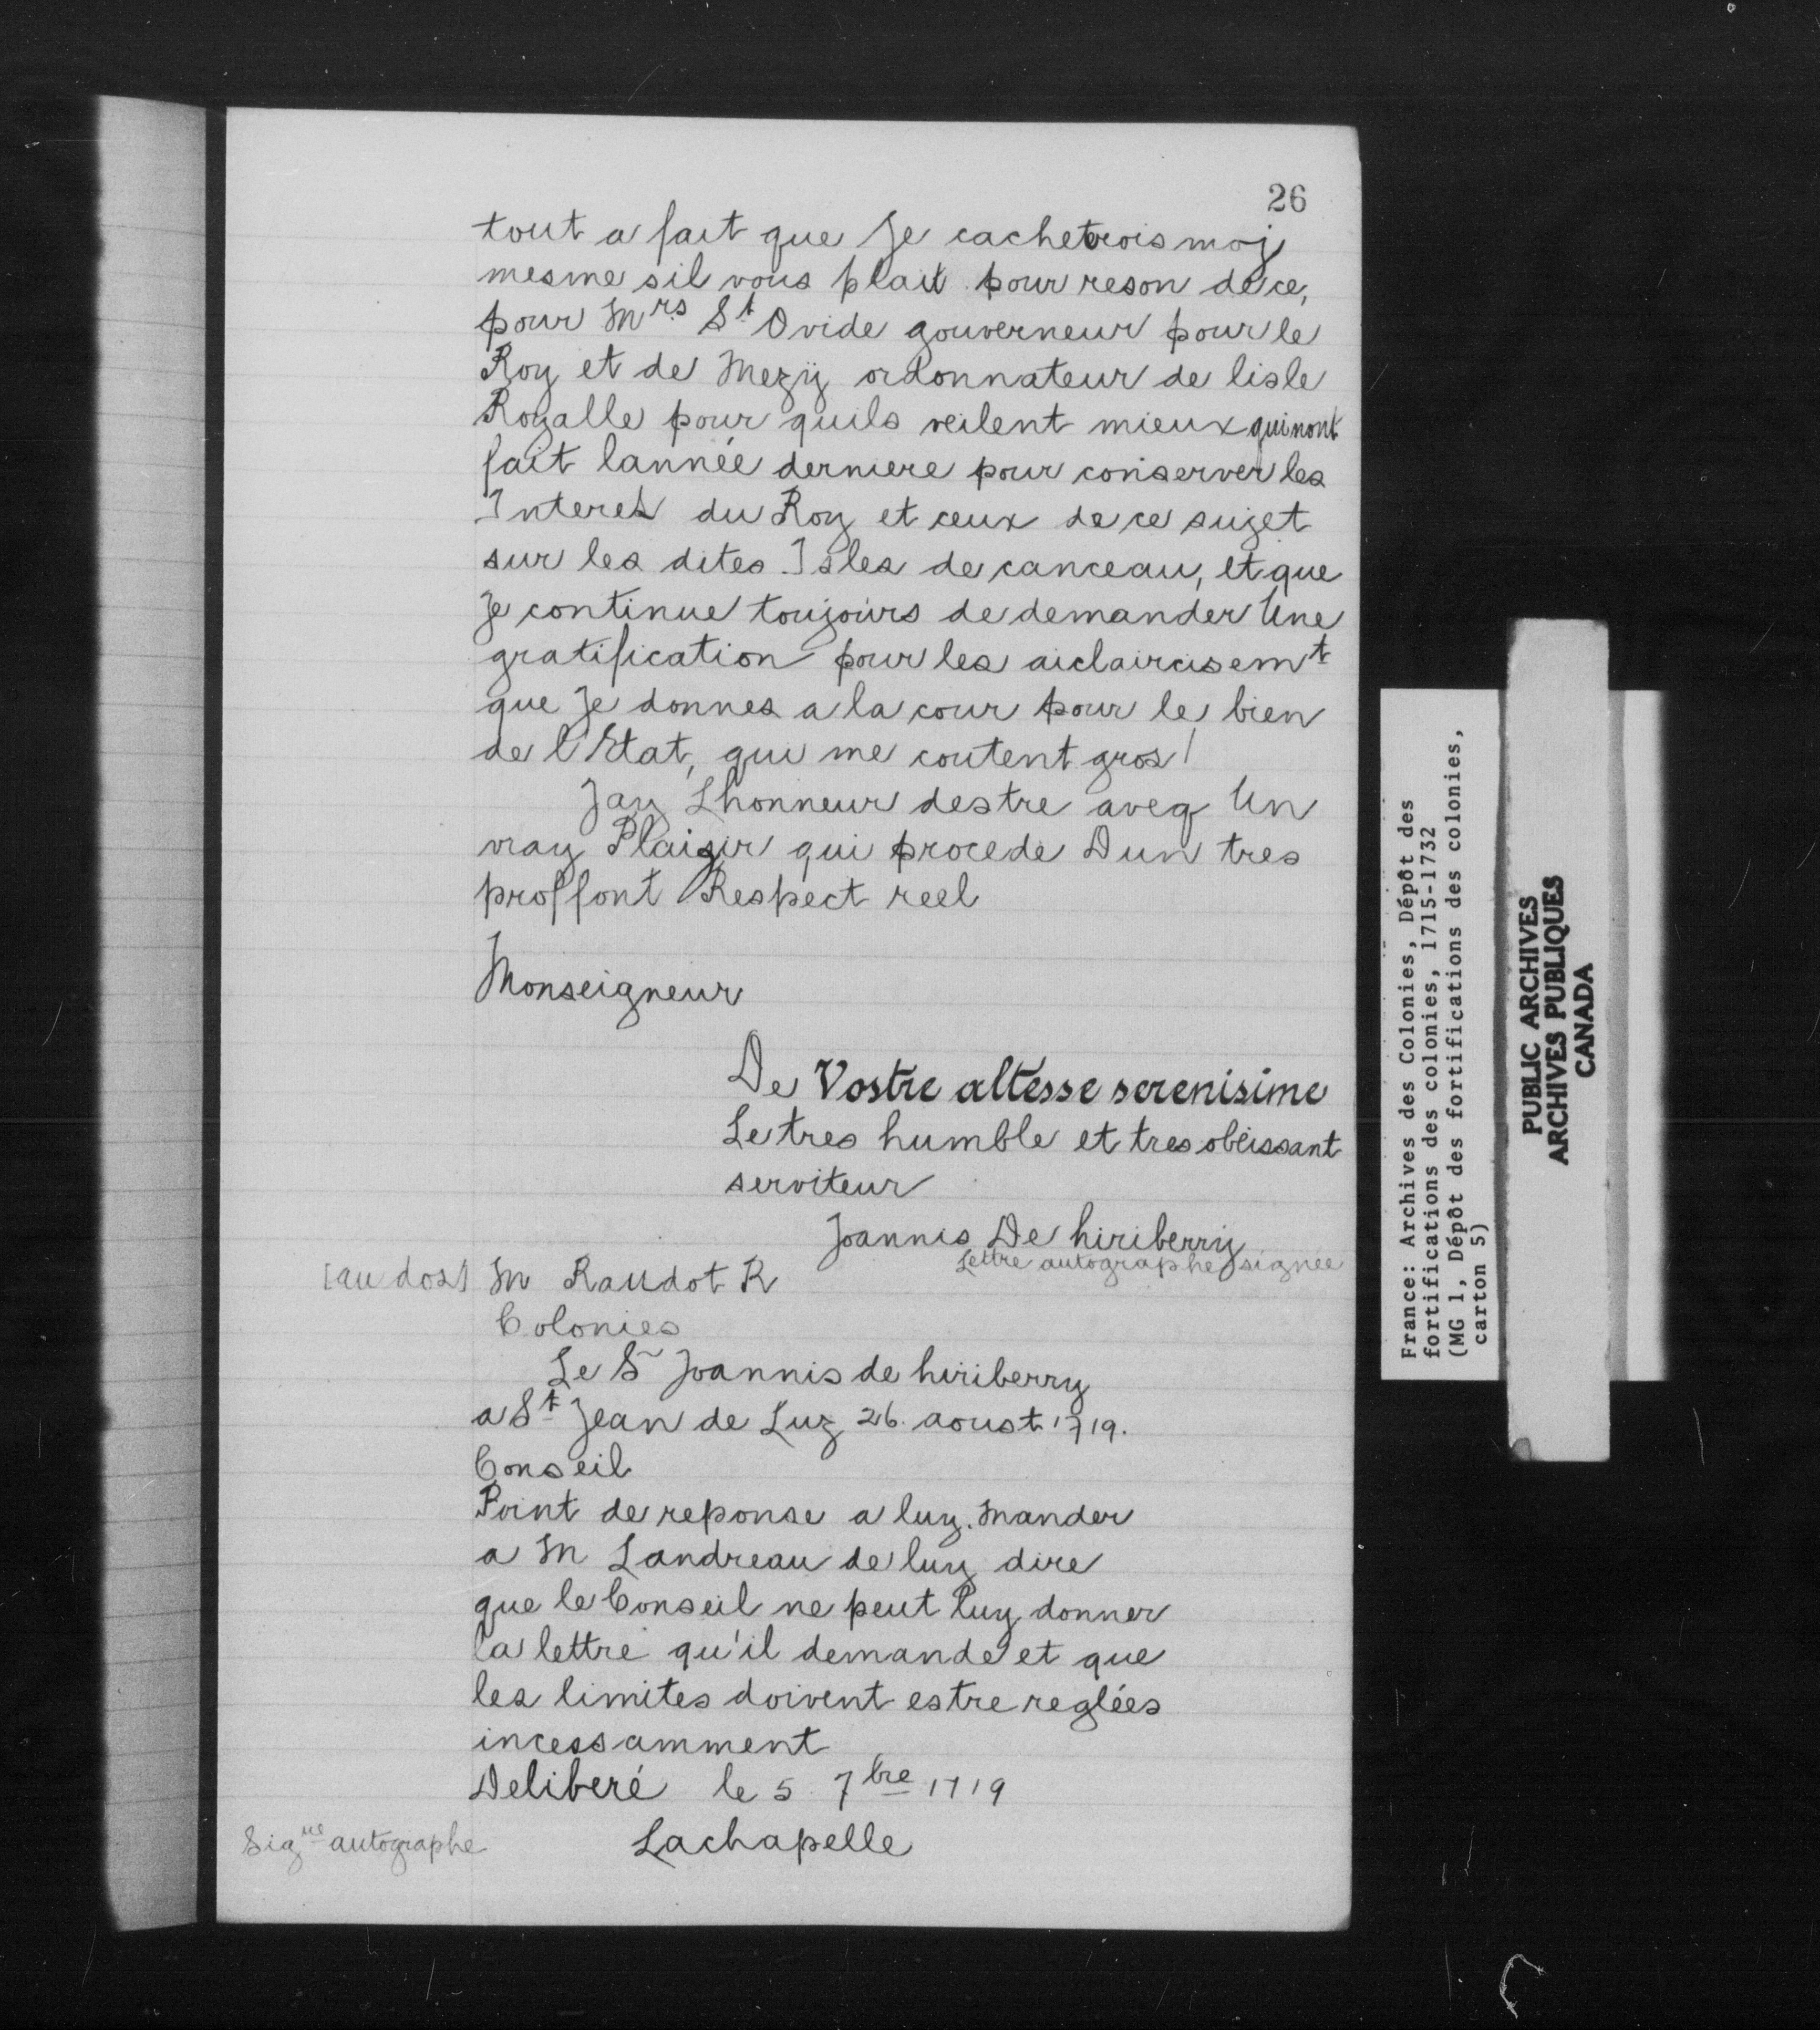 26
tout a fait que Je cacheterois moj
mesme sil vous plait pour reson de ce,
pour Mrs St Ovide gouverneur pour le
Roy et de Mezÿ ordonnateur de lisle
Royalle pour quils veilent mieux quinont
fait lannéé derniere pour conserver les
Interet du Roy et ceux de ce sujet
sur les dites Isles de canceau, et que
Je continue toujours de demander Une
gratification pour les aiclaircisemt
que Je donnes a la cour pour le bien
de l'Etat, qui me coutent gros!
Jay Lhonneur destre aveq Un
vray Plaizir qui procede Dun tres
proffont Respect reel
Monseigneur
De Vostre altesse serenisime
Le tres humble et tres obeissant
serviteur
Joannis De hiriberry
Lettre autographe signée
[au dos] M Raudot R
Colonies
Le Sr Joannis de hiriberry
a St Jean de Luz 26. aoust 1719.
Conseil
Point de reponse a luy. Mander
a M Landreau de luy dire
que le Conseil ne peut luy donner
la lettre qu'il demande et que
les limites doivent estre reglées
incessamment
Deliberé le 5 7bre 1719
Sigue autographe Lachapelle
France: Archives des Colonies, Dépôt des
fortifications des colonies, 1715-1732
(MG 1, Dépôt des fortifications des colonies,
carton 5)
PUBLIC ARCHIVES
ARCHIVES PUBLIQUES
CANADA